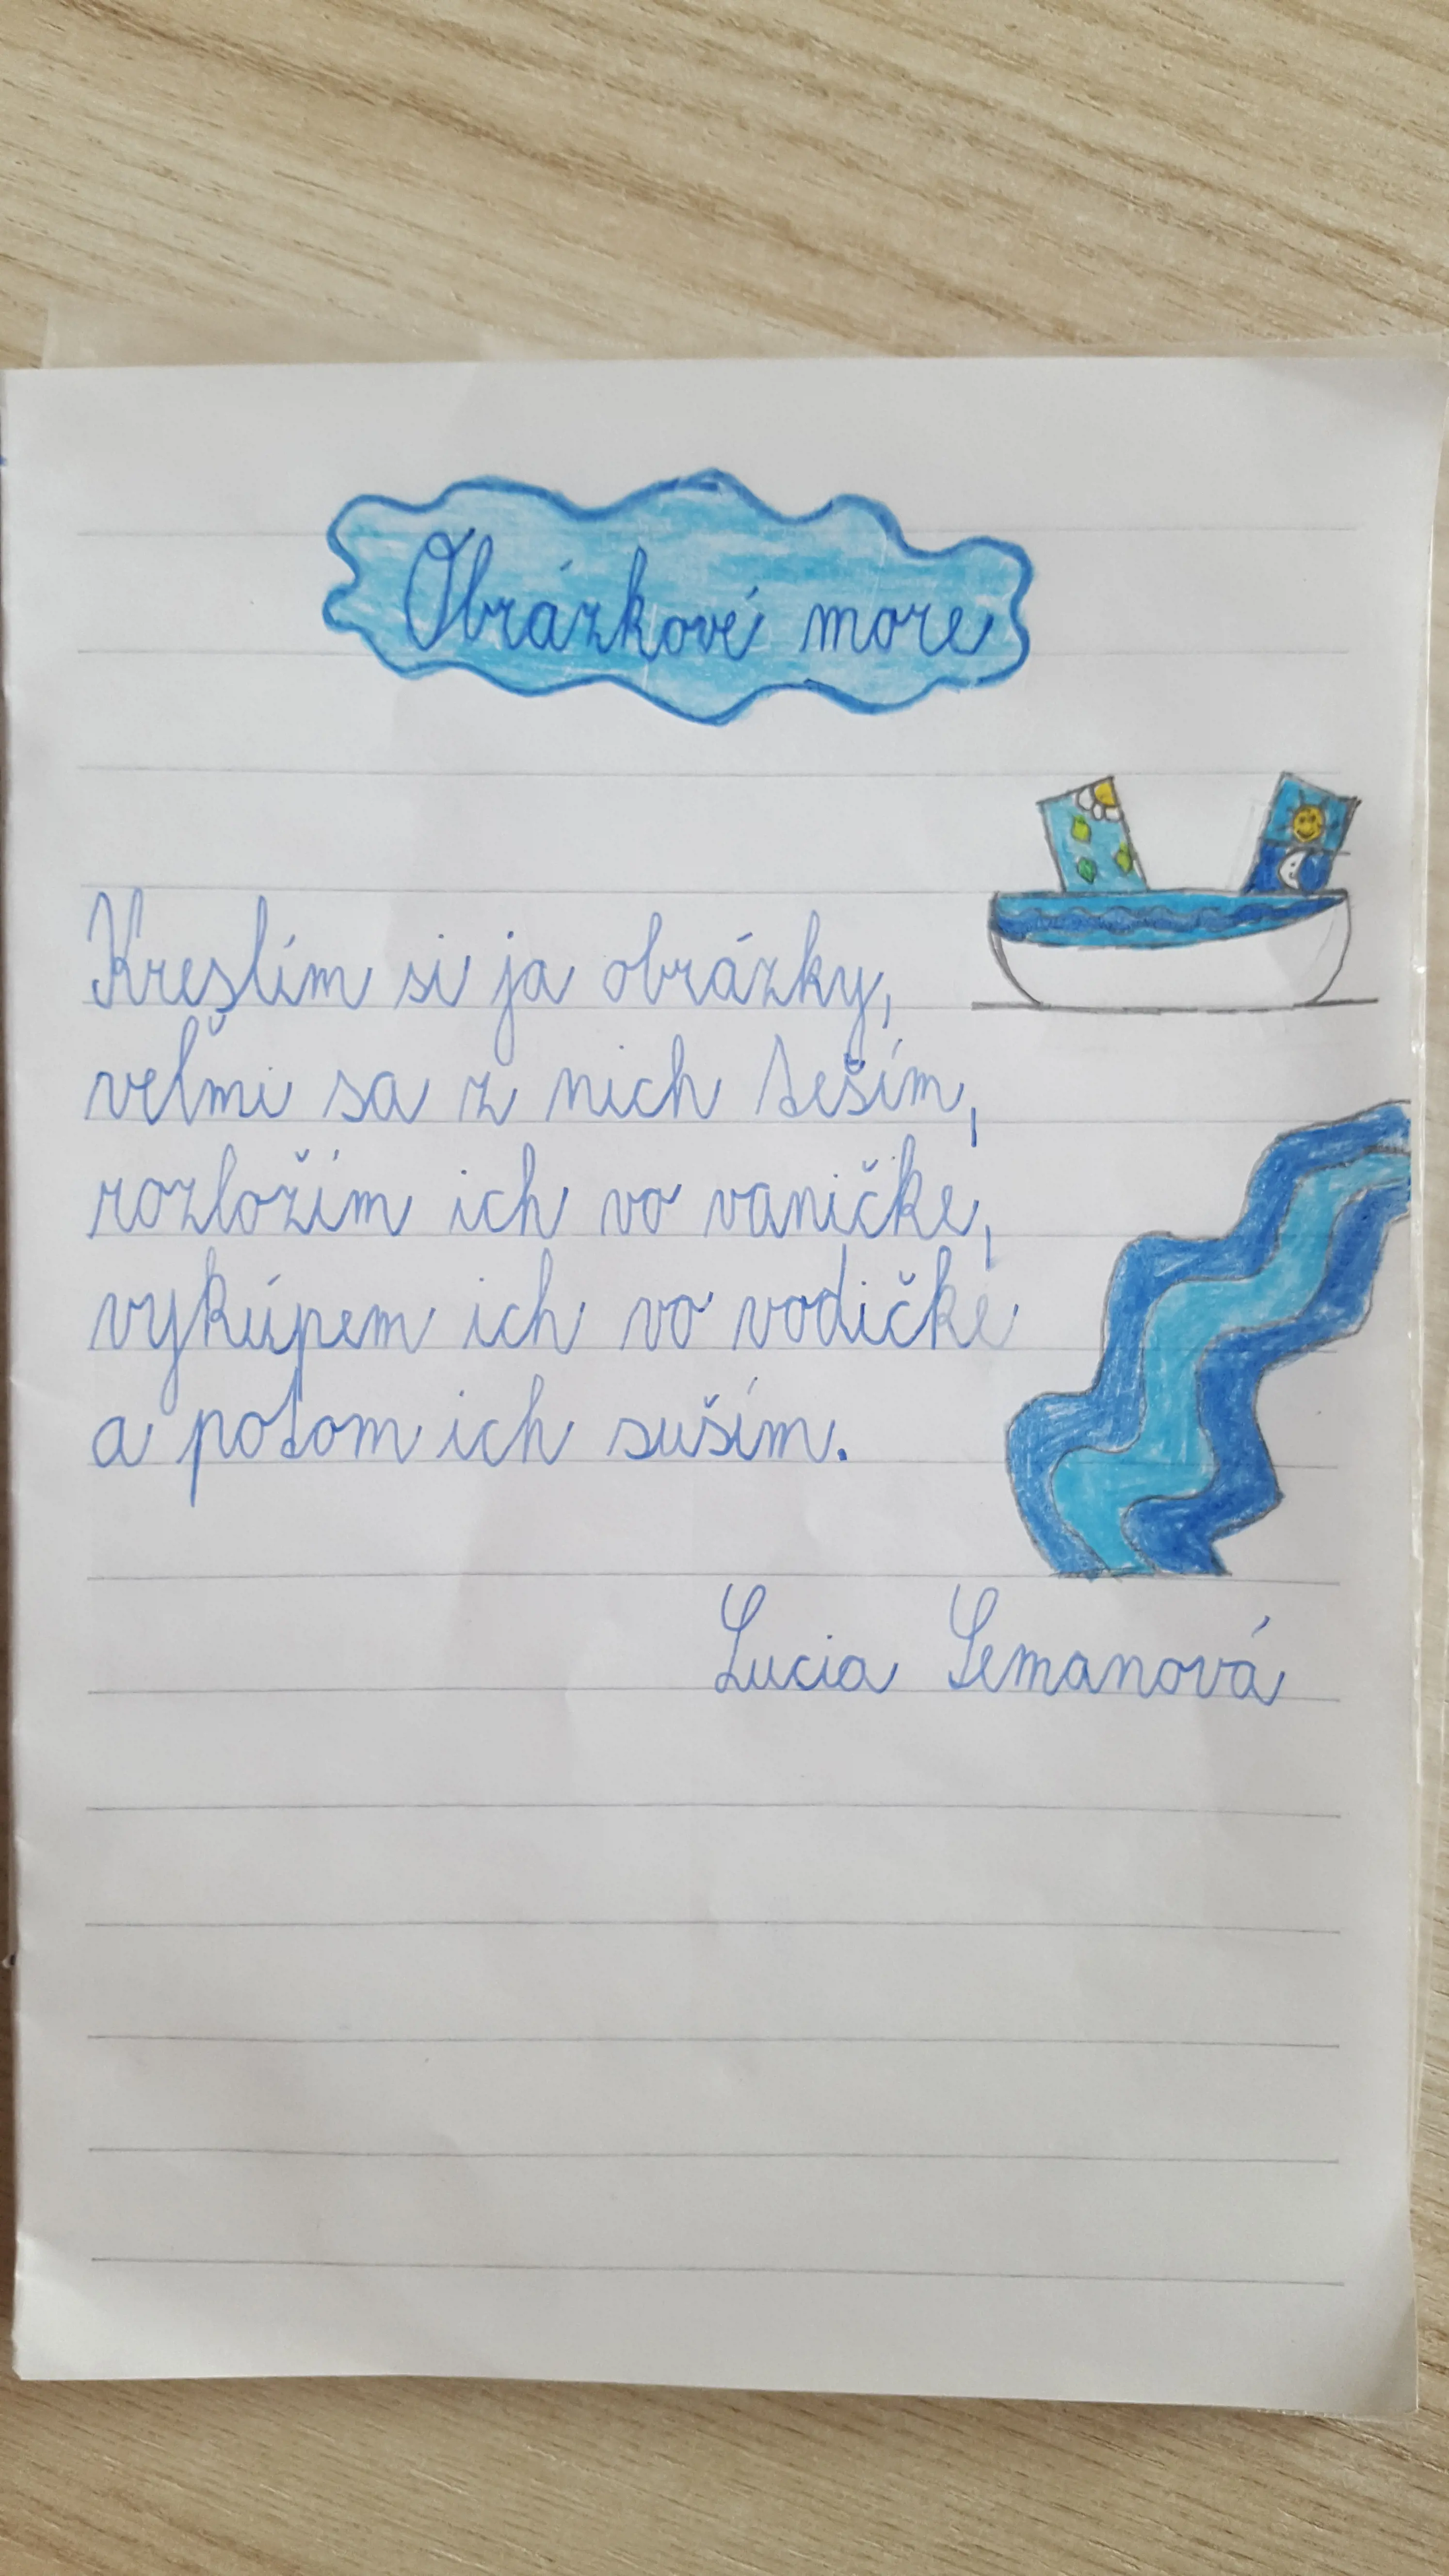 Obrázkové more
Kreslím si ja obrázky,
veľmi sa z nich teším,
rozložím ich vo vaničke,
vykúpem ich vo vodičke
a potom ich suším.
Lucia Semanová